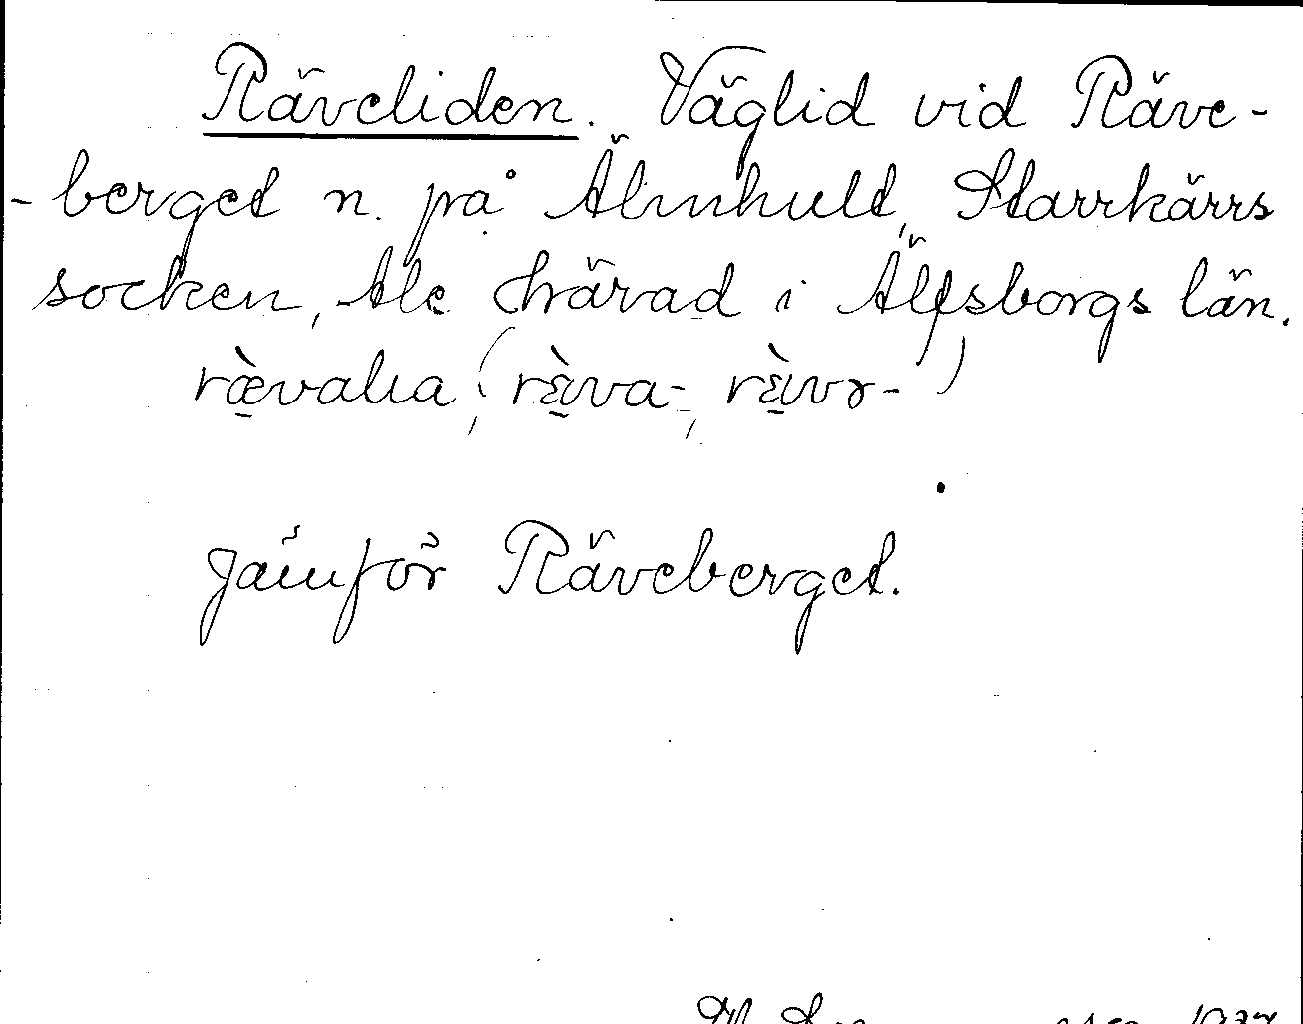 Räveliden. Väglid vid Räve-
-berget n. på Älmhult, Starrkärrs
socken, Ale härad i Älfsborgs län.
ræ̀valıa (rɛ̀va-, rɛ̀vɤ-)
Jämför Räveberget.